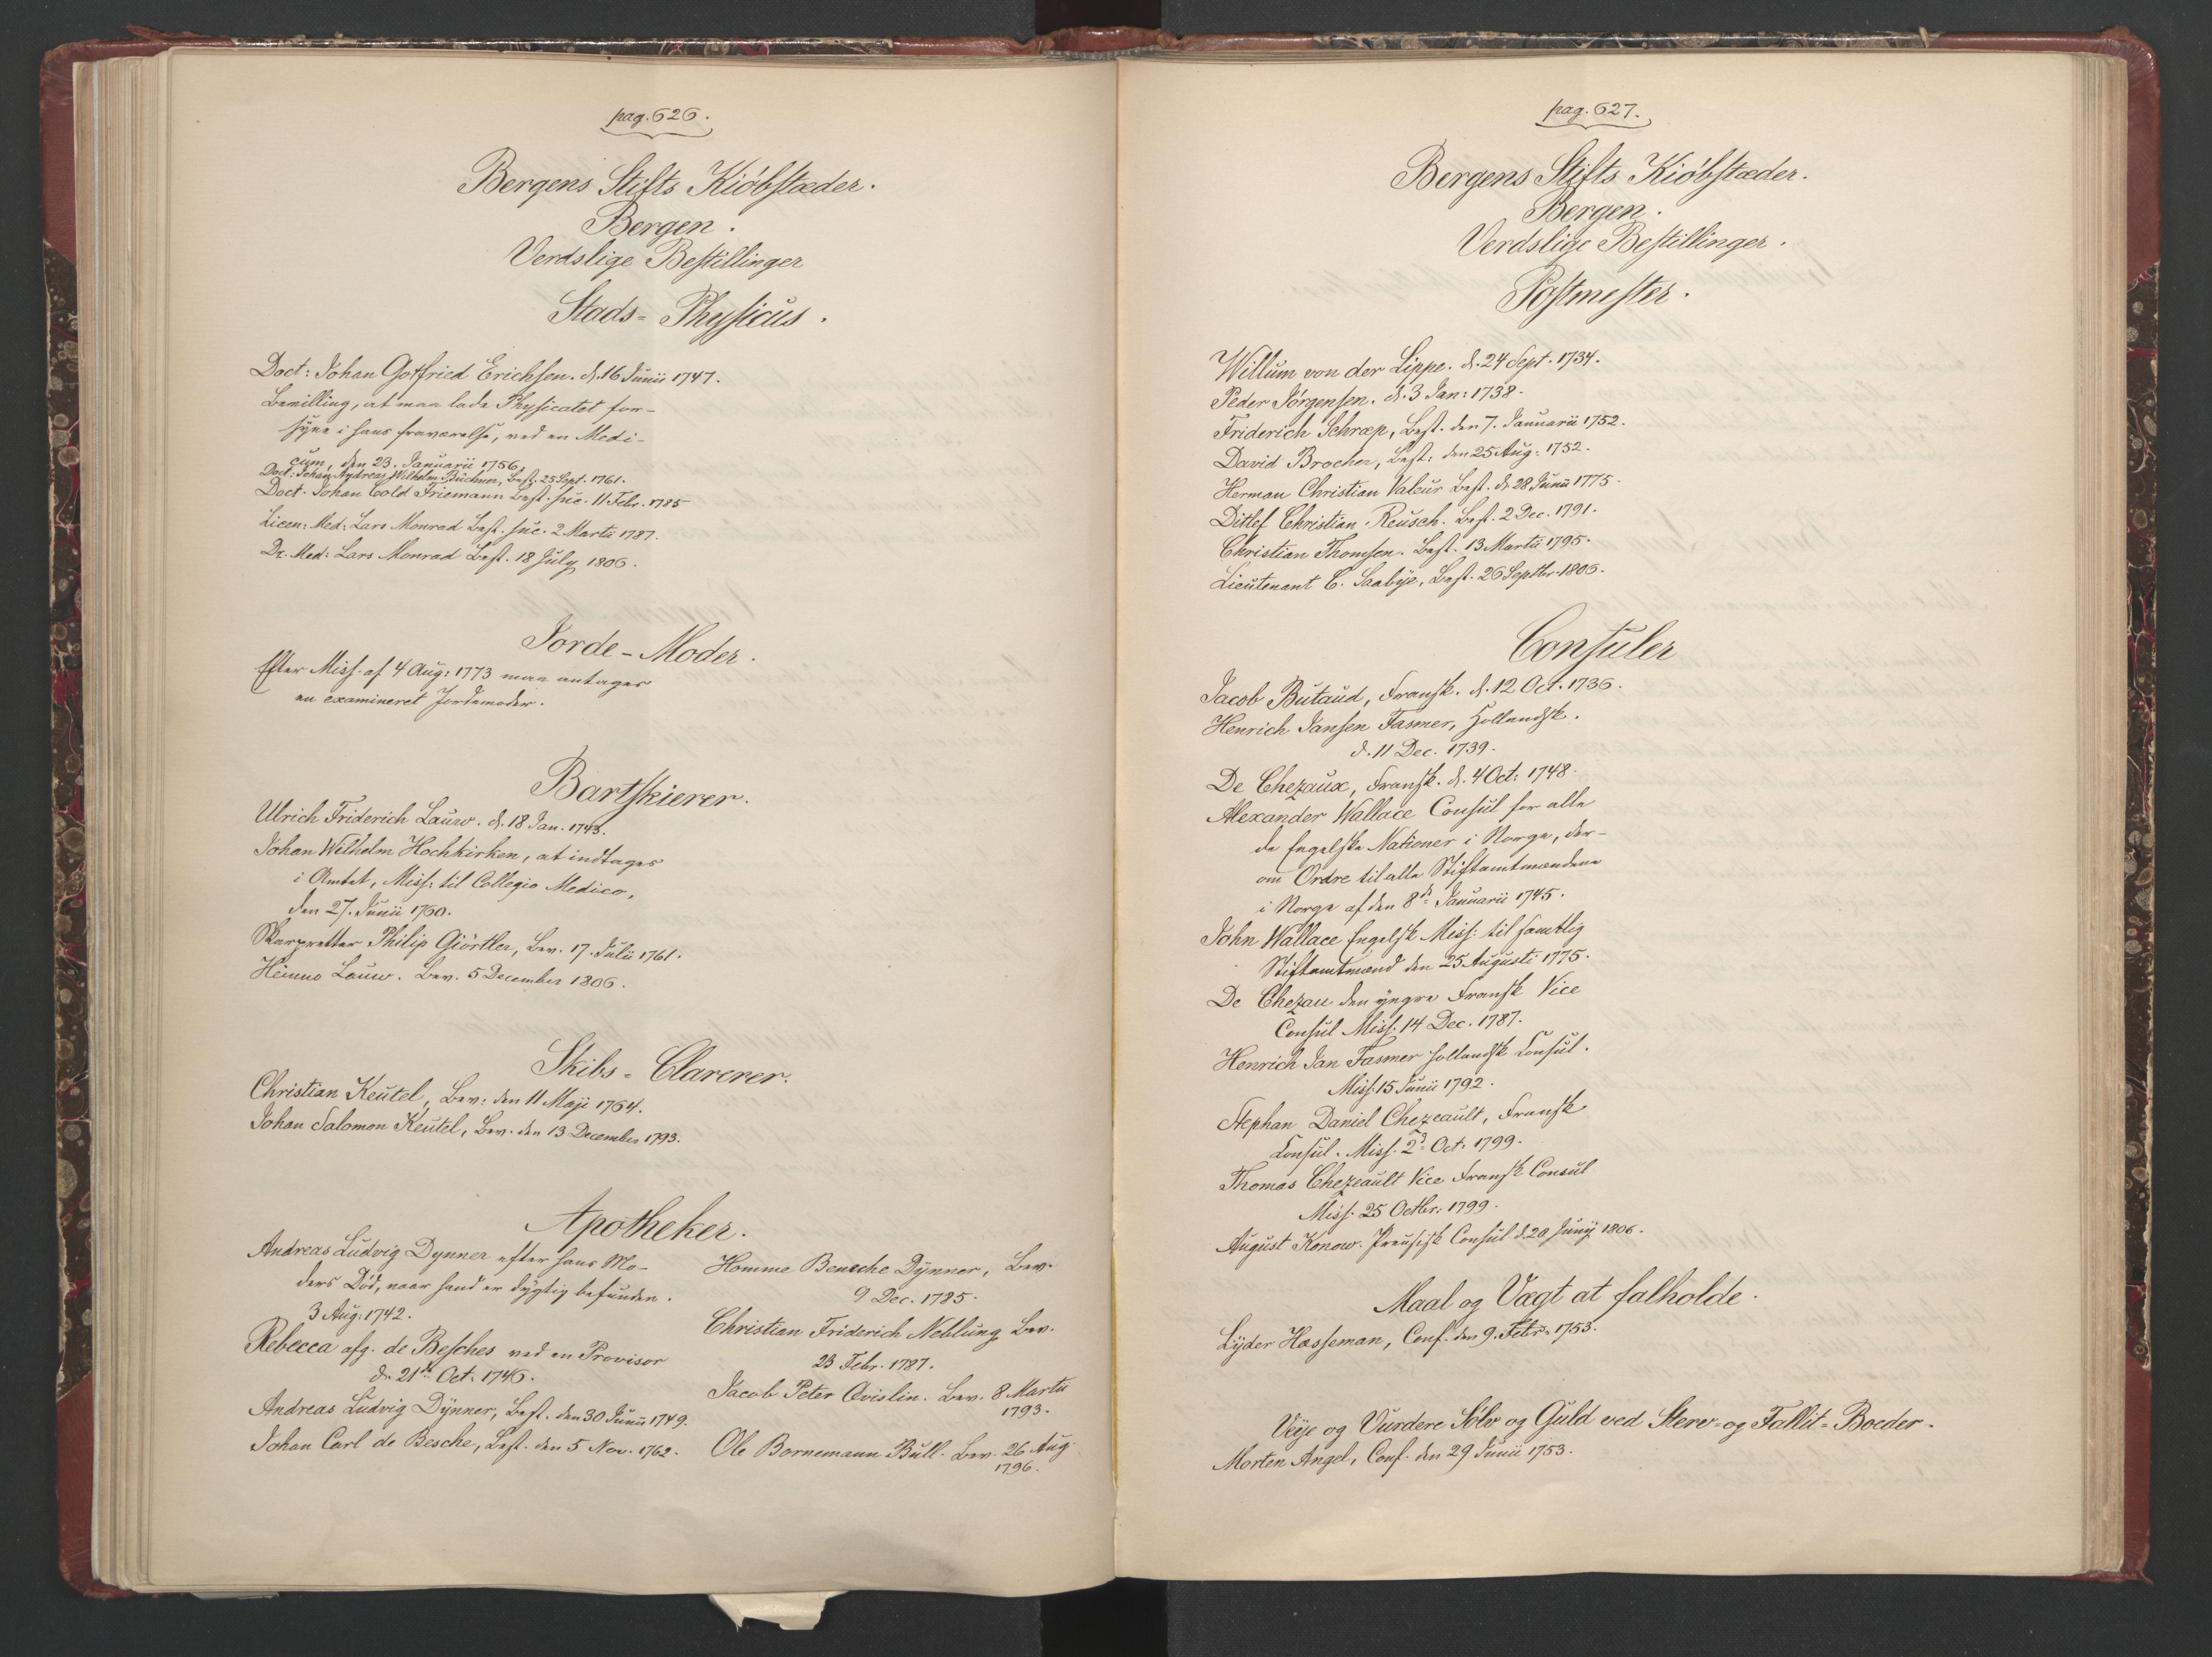 pag. 626.
Bergens Stifts Kiöbstæder.
Bergen.
Verdslige Bestillinger
Stads-Physicus.
Doct: Johan Gotfried Erichsen. d. 16 Junii 1747.
Bevilling, at maa lade Physicatet for-
syne i hans fraværelse, ved en Medi-
cum, den 23. Januarii 1756.
Doct: Johan Andreas Wilhelm Büchner, Best. 25 Sept. 1761.
Doct. Johan Cold Friemann Best. suc. 11 Febr. 1785
Licen: Med: Lars Monrad Best. suc. 2 Martii 1787.
Dr. Med: Lars Monrad Best. 18 July 1806.
Jorde-Moder.
Efter Miss. af 4 Aug: 1773 maa antages
en examineret Jordemoder.
Bartskierer.
Ulrich Friderich Lauw. d. 18 Jan. 1743.
Johan Wilhelm Hochkirken, at indtages
i Amtet, Miss: til Collegio Medico,
den 27. Junii 1760.
Skarpretter Philip Giörtler, Bev. 17. Julii 1761.
Heinno Lauw. Bev. 5 December 1806.
Skibs-Clarerer.
Christian Keutel, Bev: den 11 Maji 1764.
Johan Salomon Keutel, Bev. den 13 December 1793.
Apotheker.
Andreas Ludvig Dynner efter hans Mo-
ders Död, naar hand er dygtig befunden.
3 Aug: 1742.
Rebecca afg. de Besches ved en Provisor
d. 21de Oct. 1746.
Andreas Ludvig Dynner, Best. den 30 Junii 1749.
Johan Carl de Besche, Best. den 5 Nov. 1762.
Homme Bensche Dynner, Bev.
9 Dec. 1785.
Christian Friderich Neblung Bev.
23 Febr. 1787.
Jacob Peter Qvislin. Bev. 8 Martii
1793.
Ole Bornemann Bull. Bev. 26 Aug
1796.
pag. 627.
Bergens Stifts Kiöbstæder.
Bergen.
Verdslige Bestillinger.
Postmester.
Willum von der Lippe. d. 24 Sept. 1734.
Peder Jörgensen. d. 3 Jan: 1738.
Friderich Schrøp, Best. den 7. Januarii 1752.
David Brocher, Best: den 25 Aug: 1752.
Herman Christian Valeur Best. d. 28 Junii 1775.
Ditlef Christian Reusch. Best. 2 Dec. 1791.
Christian Thomsen. Best. 13 Martii 1795.
Lieutenant C. Saabye, Best. 26 Septbr. 1806.
Consuler
Jacob Butaud, Fransk. d. 12 Oct. 1736.
Henrich Jansen Fasmer, Hollandsk.
d. 11 Dec. 1739.
De Chezaux, Fransk. d. 4 Oct: 1748.
Alexander Wallace Consul for alle
de Engelske Nationer i Norge, der-
om Ordre til alle Stiftamtmændene
i Norge af den 8de Januarii 1745.
John Wallace Engelsk Miss: til samtlig
Stiftamtmænd den 25 Augusti 1775.
De Chezau den yngre Fransk Vice
Consul Miss. 14 Dec. 1787.
Henrich Jan Fasmer hollandsk Consul.
Miss: 15 Junii 1792.
Stephan Daniel Chezeault, Fransk
Consul. Miss. 2d Oct. 1799.
Thomas Chezeault Vice Fransk Consul
Miss. 25 Octbr. 1799.
August Konow. Preusisk Consul d. 20 Junij 1806.
Maal og Vægt at falholde.
Lyder Hasseman, Conf. den 9. Febr. 1753.
Veije og Vurdere Sölv og Guld ved Sterv- og Fallit-Boeder.
Morten Angel, Conf. den 29 Junii 1753.